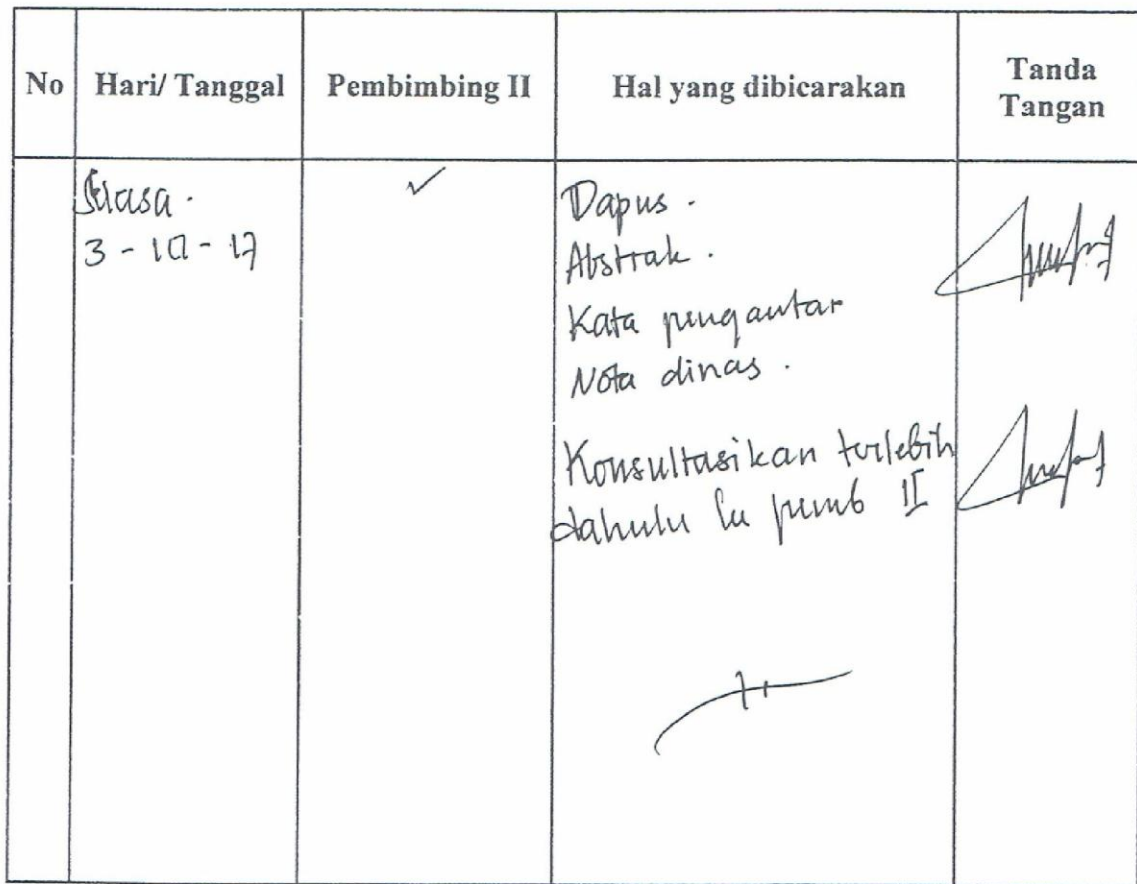 No Hari/ Tanggal Pembimbing II Hal yang dibicarakan Tanda Tangan
Selasa.
3 - 10 - 17
✓
Dapus.
Abstrak.
Kata pengantar
Nota dinas.
Konsultasikan terlebih
dahulu ke pemb II